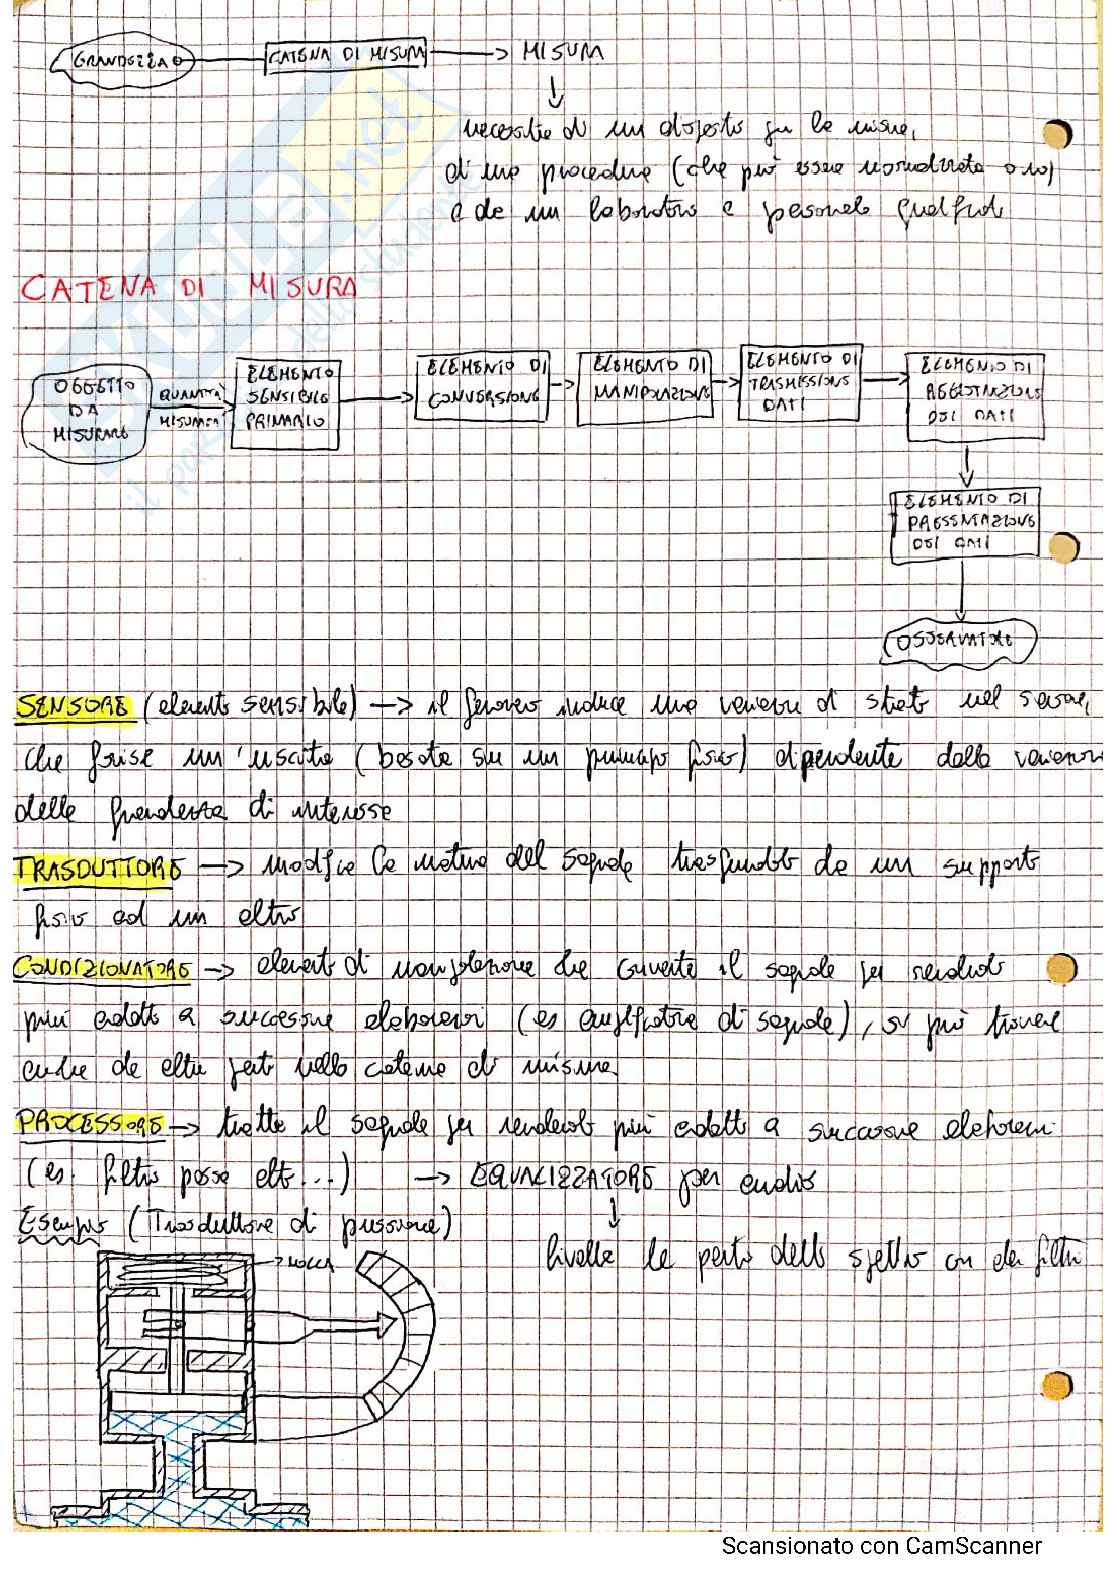 GRANDEZZA CATENA DI MISURA MISURA
necessita di un per la misura,
di una procedura (che può essere normalizzata o no)
e da un laboratorio e personale
CATENA DI MISURA
OGGETTO
DA
MISURARE
QUANTITÀ
MISURATA
ELEMENTO
SENSIBILE
PRIMARIO
ELEMENTO DI
CONVERSIONE
ELEMENTO DI
MANIPOLAZIONE
ELEMENTO DI
TRASMISSIONE
DATI
ELEMENTO DI
REGISTRAZIONE
DEI DATI
ELEMENTO DI
PRESENTAZIONE
DEI DATI
OSSERVATORE
SENSORE (elemento sensibile) → il induce una di stato nel sensore,
che fornisce un'uscita (basata su un principio fisico) dipendente dalla
della grandezza di interesse
TRASDUTTORE → modifica la natura del segnale da un supporto
fisico ad un altro
CONDIZIONATORE → elemento di manipolazione che converte il segnale per renderlo
più adatto a successive elaborazioni (es amplificatore di segnale), si può trovare
anche da altre parti nella catena di misura
PROCESSORE → tratta il segnale per renderlo più adatto a successive elaborazioni
(es. filtro passa alto...) → EQUALIZZATORE per audio
livella le parti dello spettro con dei filtri
Esempio (Trasduttore di pressione)
MOLLA
SKUOLA.net
il paradiso dello studente
Scansionato con CamScanner